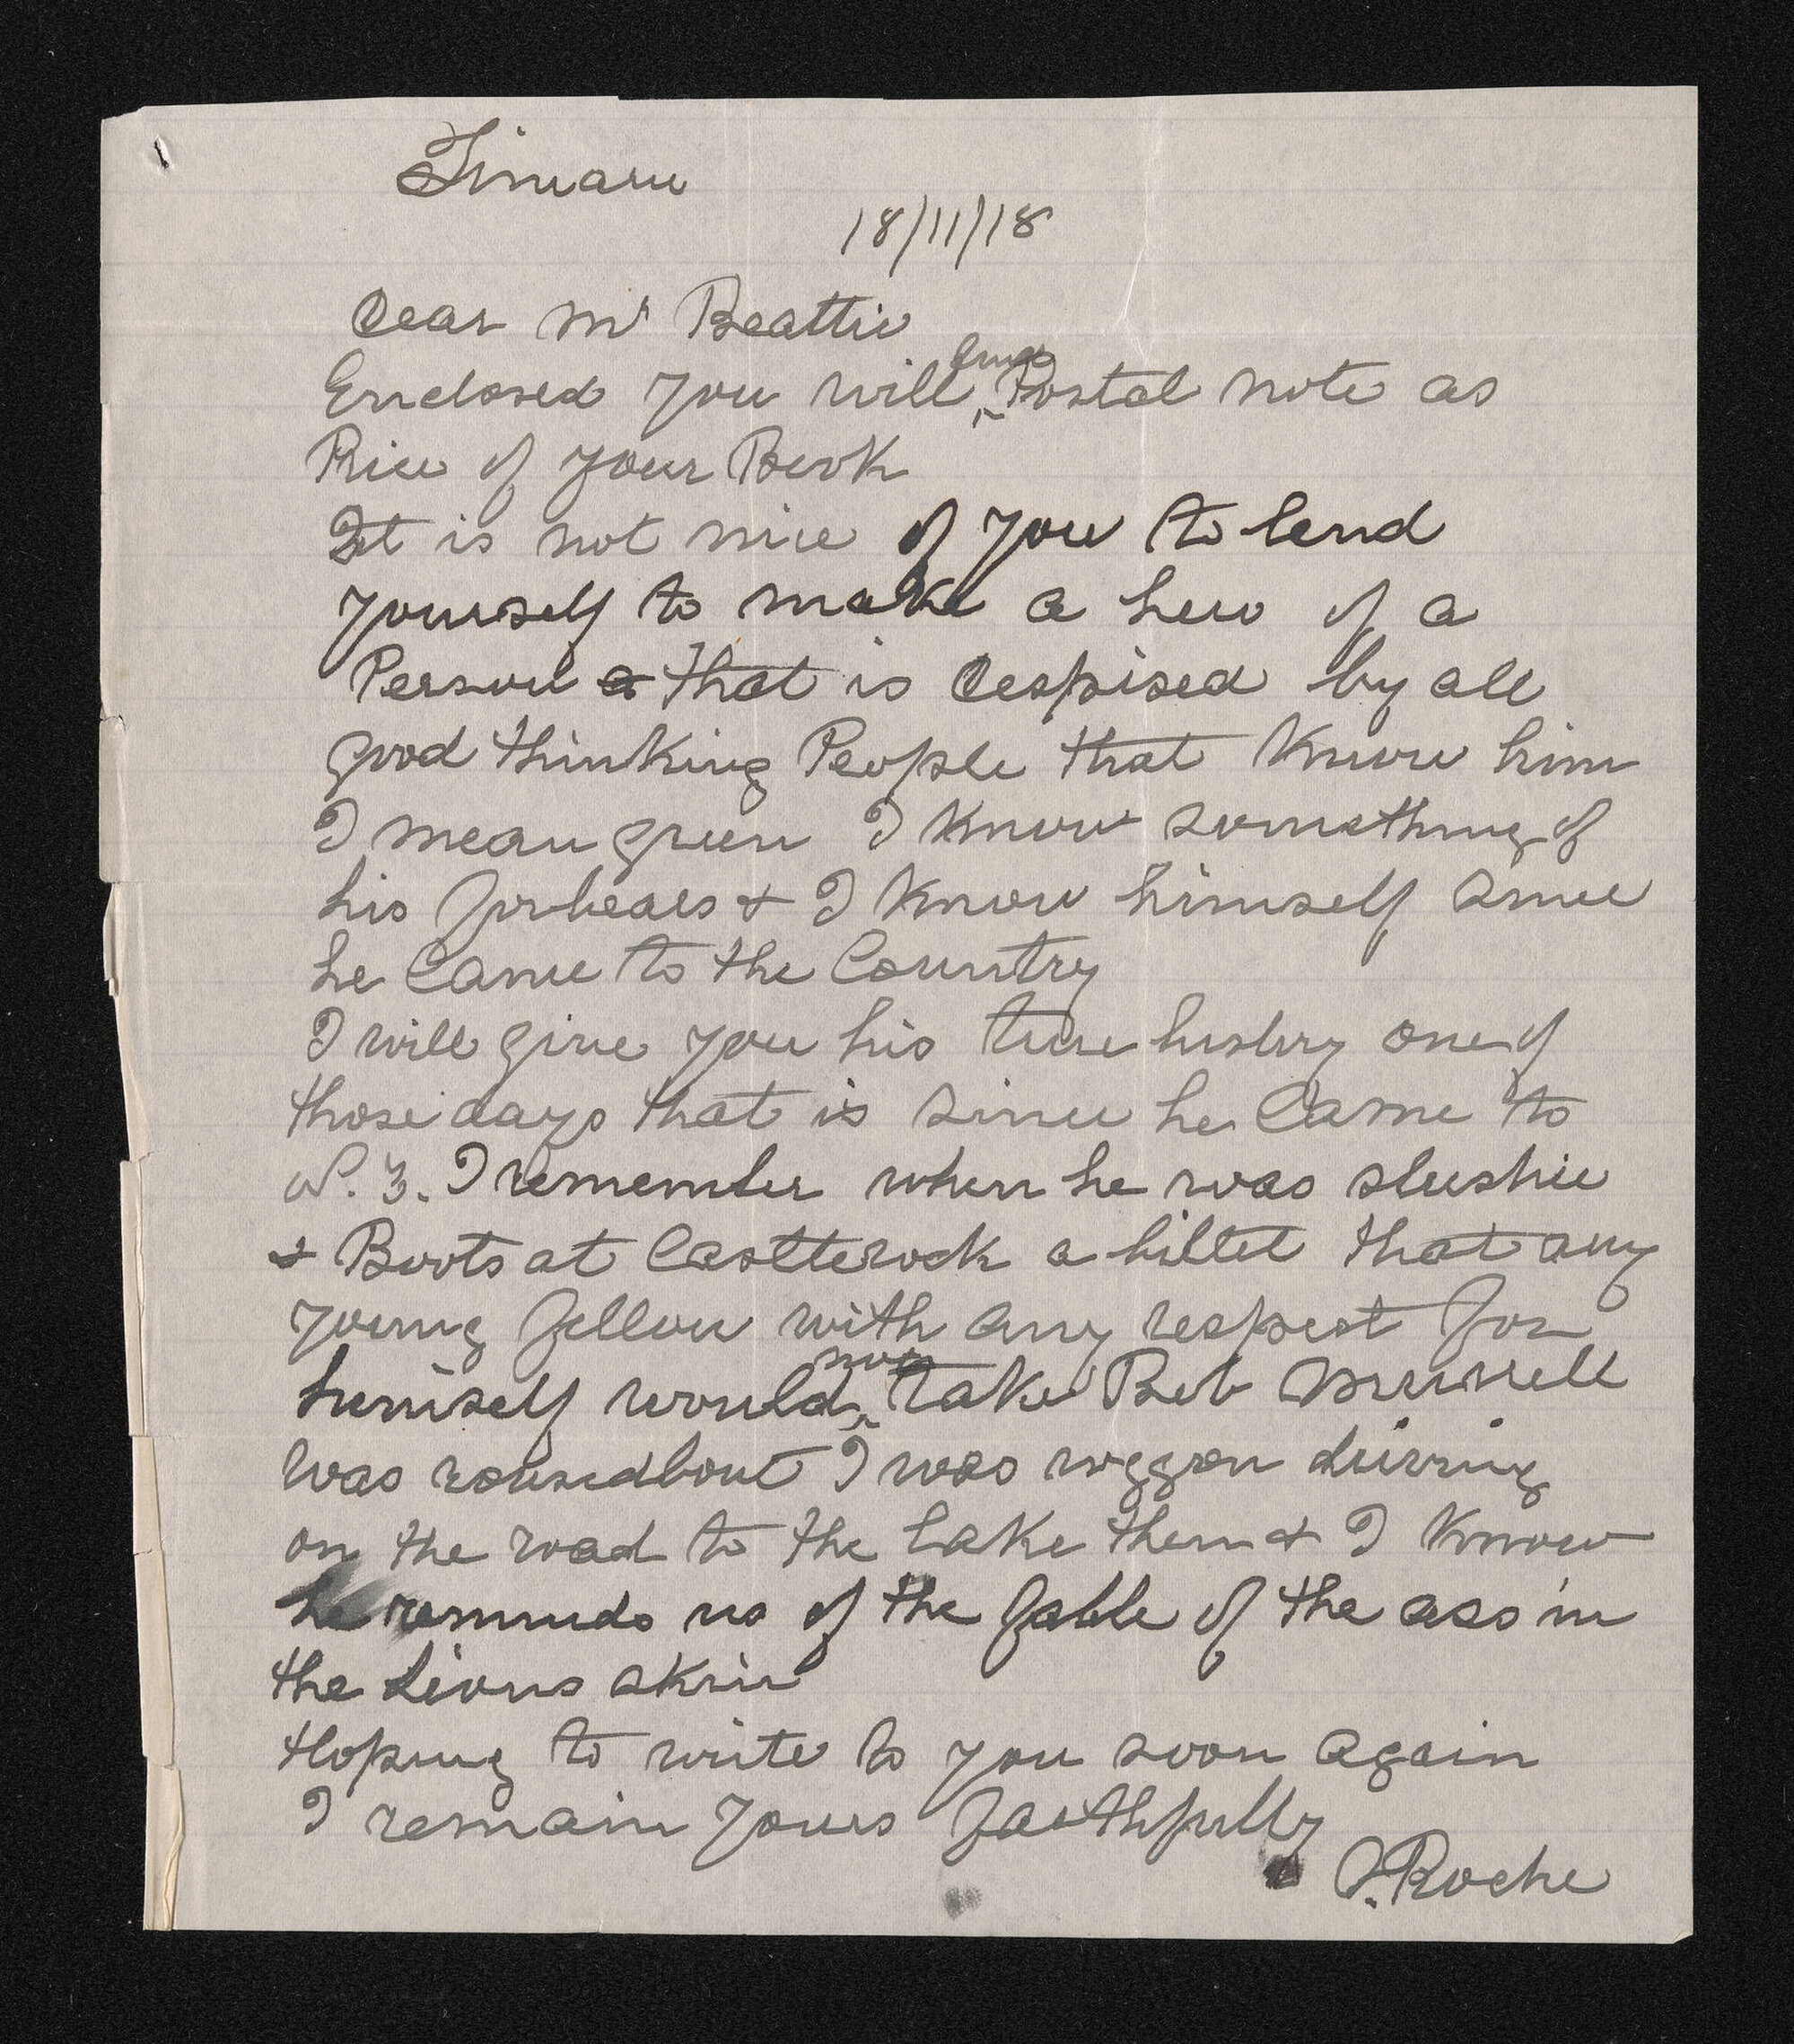 Timaru
18/11/18
Dear Mr Beattie
Enclosed you will Postal note as
Price of your Book
It is not nice of you to lend
yourself to make a hero of a
Person a that is despised by all
good thinking People that know him
I mean green I know something of
his forbears & I know himself since
he Came to the Country
I will give you his true history one of
those days that is since he Came to
N.Z. I remember when he was slushie
& Boots at Castlerock a billet that any
young fellow with any respect for
himself would not take Bob Murrell
was rouseabout I was waggon driving
on the road to the Lake then & I know
he reminds us of the fable of the ass in
the Lions skin
Hoping to write to you soon again
I remain yours faithfully
Roche